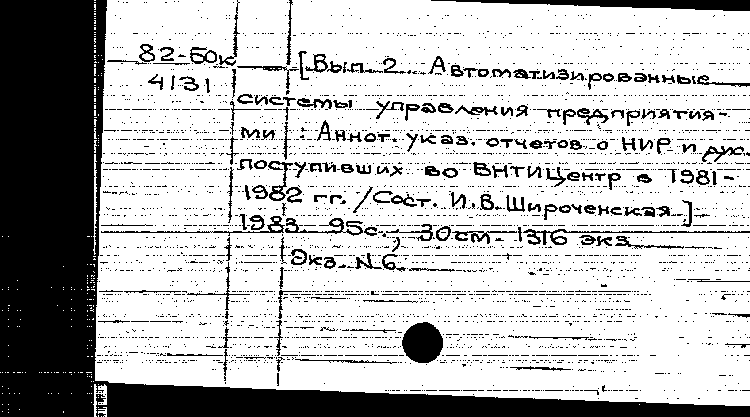 82-50к
4131
[Вып. 2. Автоматизированные
системы управления предприятия-
ми : Аннот. указ. отчетов о НИР и дис.
поступивших во ВНТИЦентр в 1981-
1982 гг. /Сост. И.В. Широченская.]
1983. 95с.; 30см. 1316 экз.
Экз. N 6.